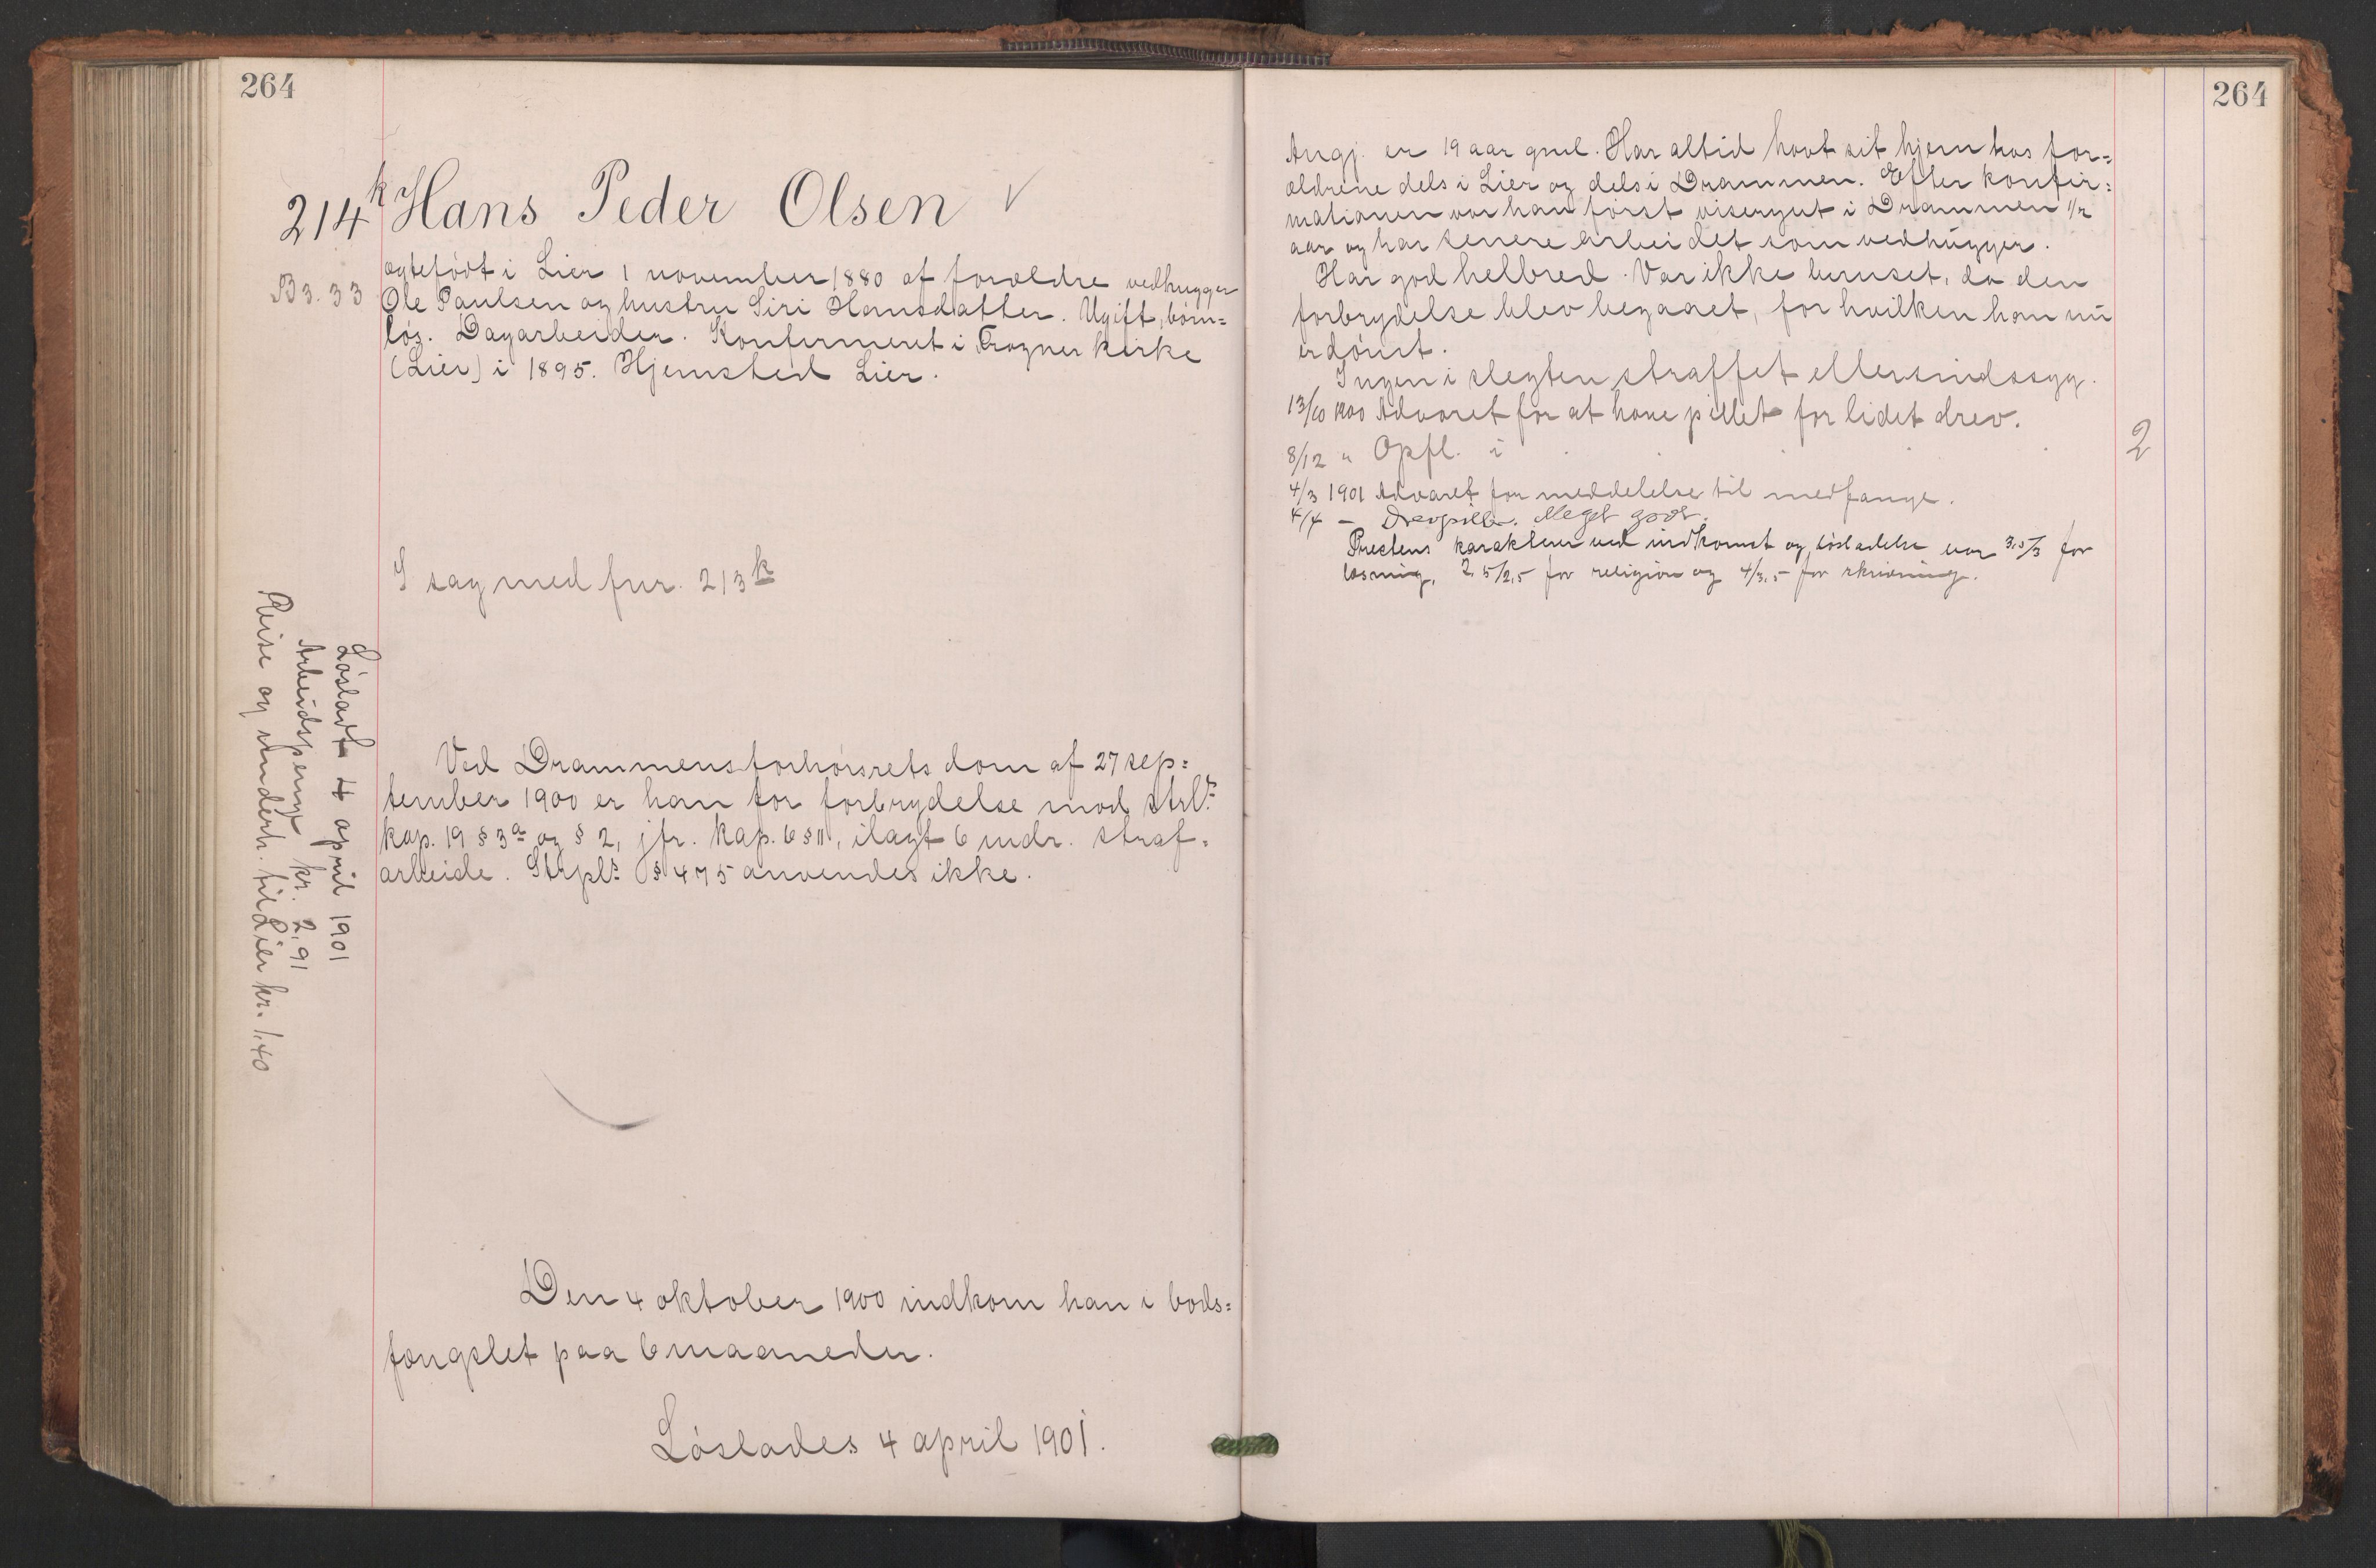 264
214k Hans Peder Olsen ✓
B3.33
ægtefødt i Lier 1 november 1880 af forældre vedhugger
Ole Paulsen og hustru Siri Hansdatter. Ugift, børn=
løs. Dagarbeider. Konfirmeret i Frogner kirke
(Lier) i 1895. Hjemsted Lier.
I sag med fnr. 213k
Ved Drammens forhørsrets dom af 27 sep=
tember 1900 er han for forbrydelse mod strl.s
kap. 19 § 3a og § 2, jfr. kap. 6 § 11, ilagt 6 mdr. straf=
arbeide. Strpl.s § 475 anvendes ikke.
Den 4 oktober 1900 indkom han i bods=
fængslet paa 6 maaneder.
Løslades 4 april 1901.
Løsladt 4 april 1901
Arbeidspenge kr. 2,91
Reise og underh. til Lier kr. 1,40
264
Angj. er 19 aar gml. Har altid havt sit hjem hos for=
ældrene dels i Lier og dels i Drammen. Efter konfir=
mationen var han først visergut i Drammen 1/2
aar og har senere arbeidet som vedhugger.
Har god helbred. Var ikke beruset, da den
forbrydelse blev begaaet, for hvilken han nu
er dømt.
Ingen i slegten straffet eller sindssyg.
13/10 1900 Advaret for at have pillet for lidet drev.
8/12 " Opfl. i
2
4/3 1901 Advaret for meddelelse til medfange.
4/4 – Drevpiller. Meget godt.
Prestens karakterer ved indkomst og løsladelse var 3,5/3 for
læsning, 2,5/2,5 for religion og 4/3,5 for skrivning.